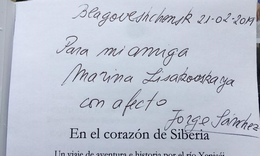 Blagoveshchensk 21-02-2019
Para mi amiga
Marina Lisakovskaya
con afecto
Jorge Sánchez
En el corazón de Siberia
Un viaje de aventura e historia por el río Yeniséi